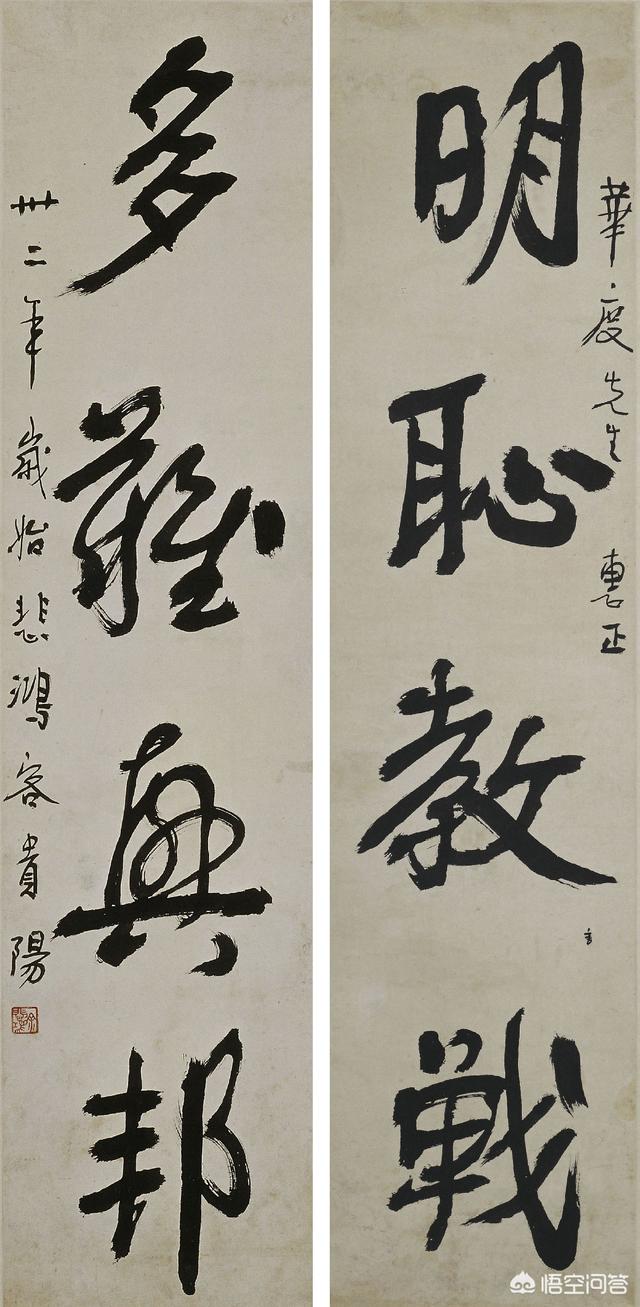 華度先生惠正
明恥教戰
多難興邦
卅二年歲始悲鴻客貴陽
悟空问答